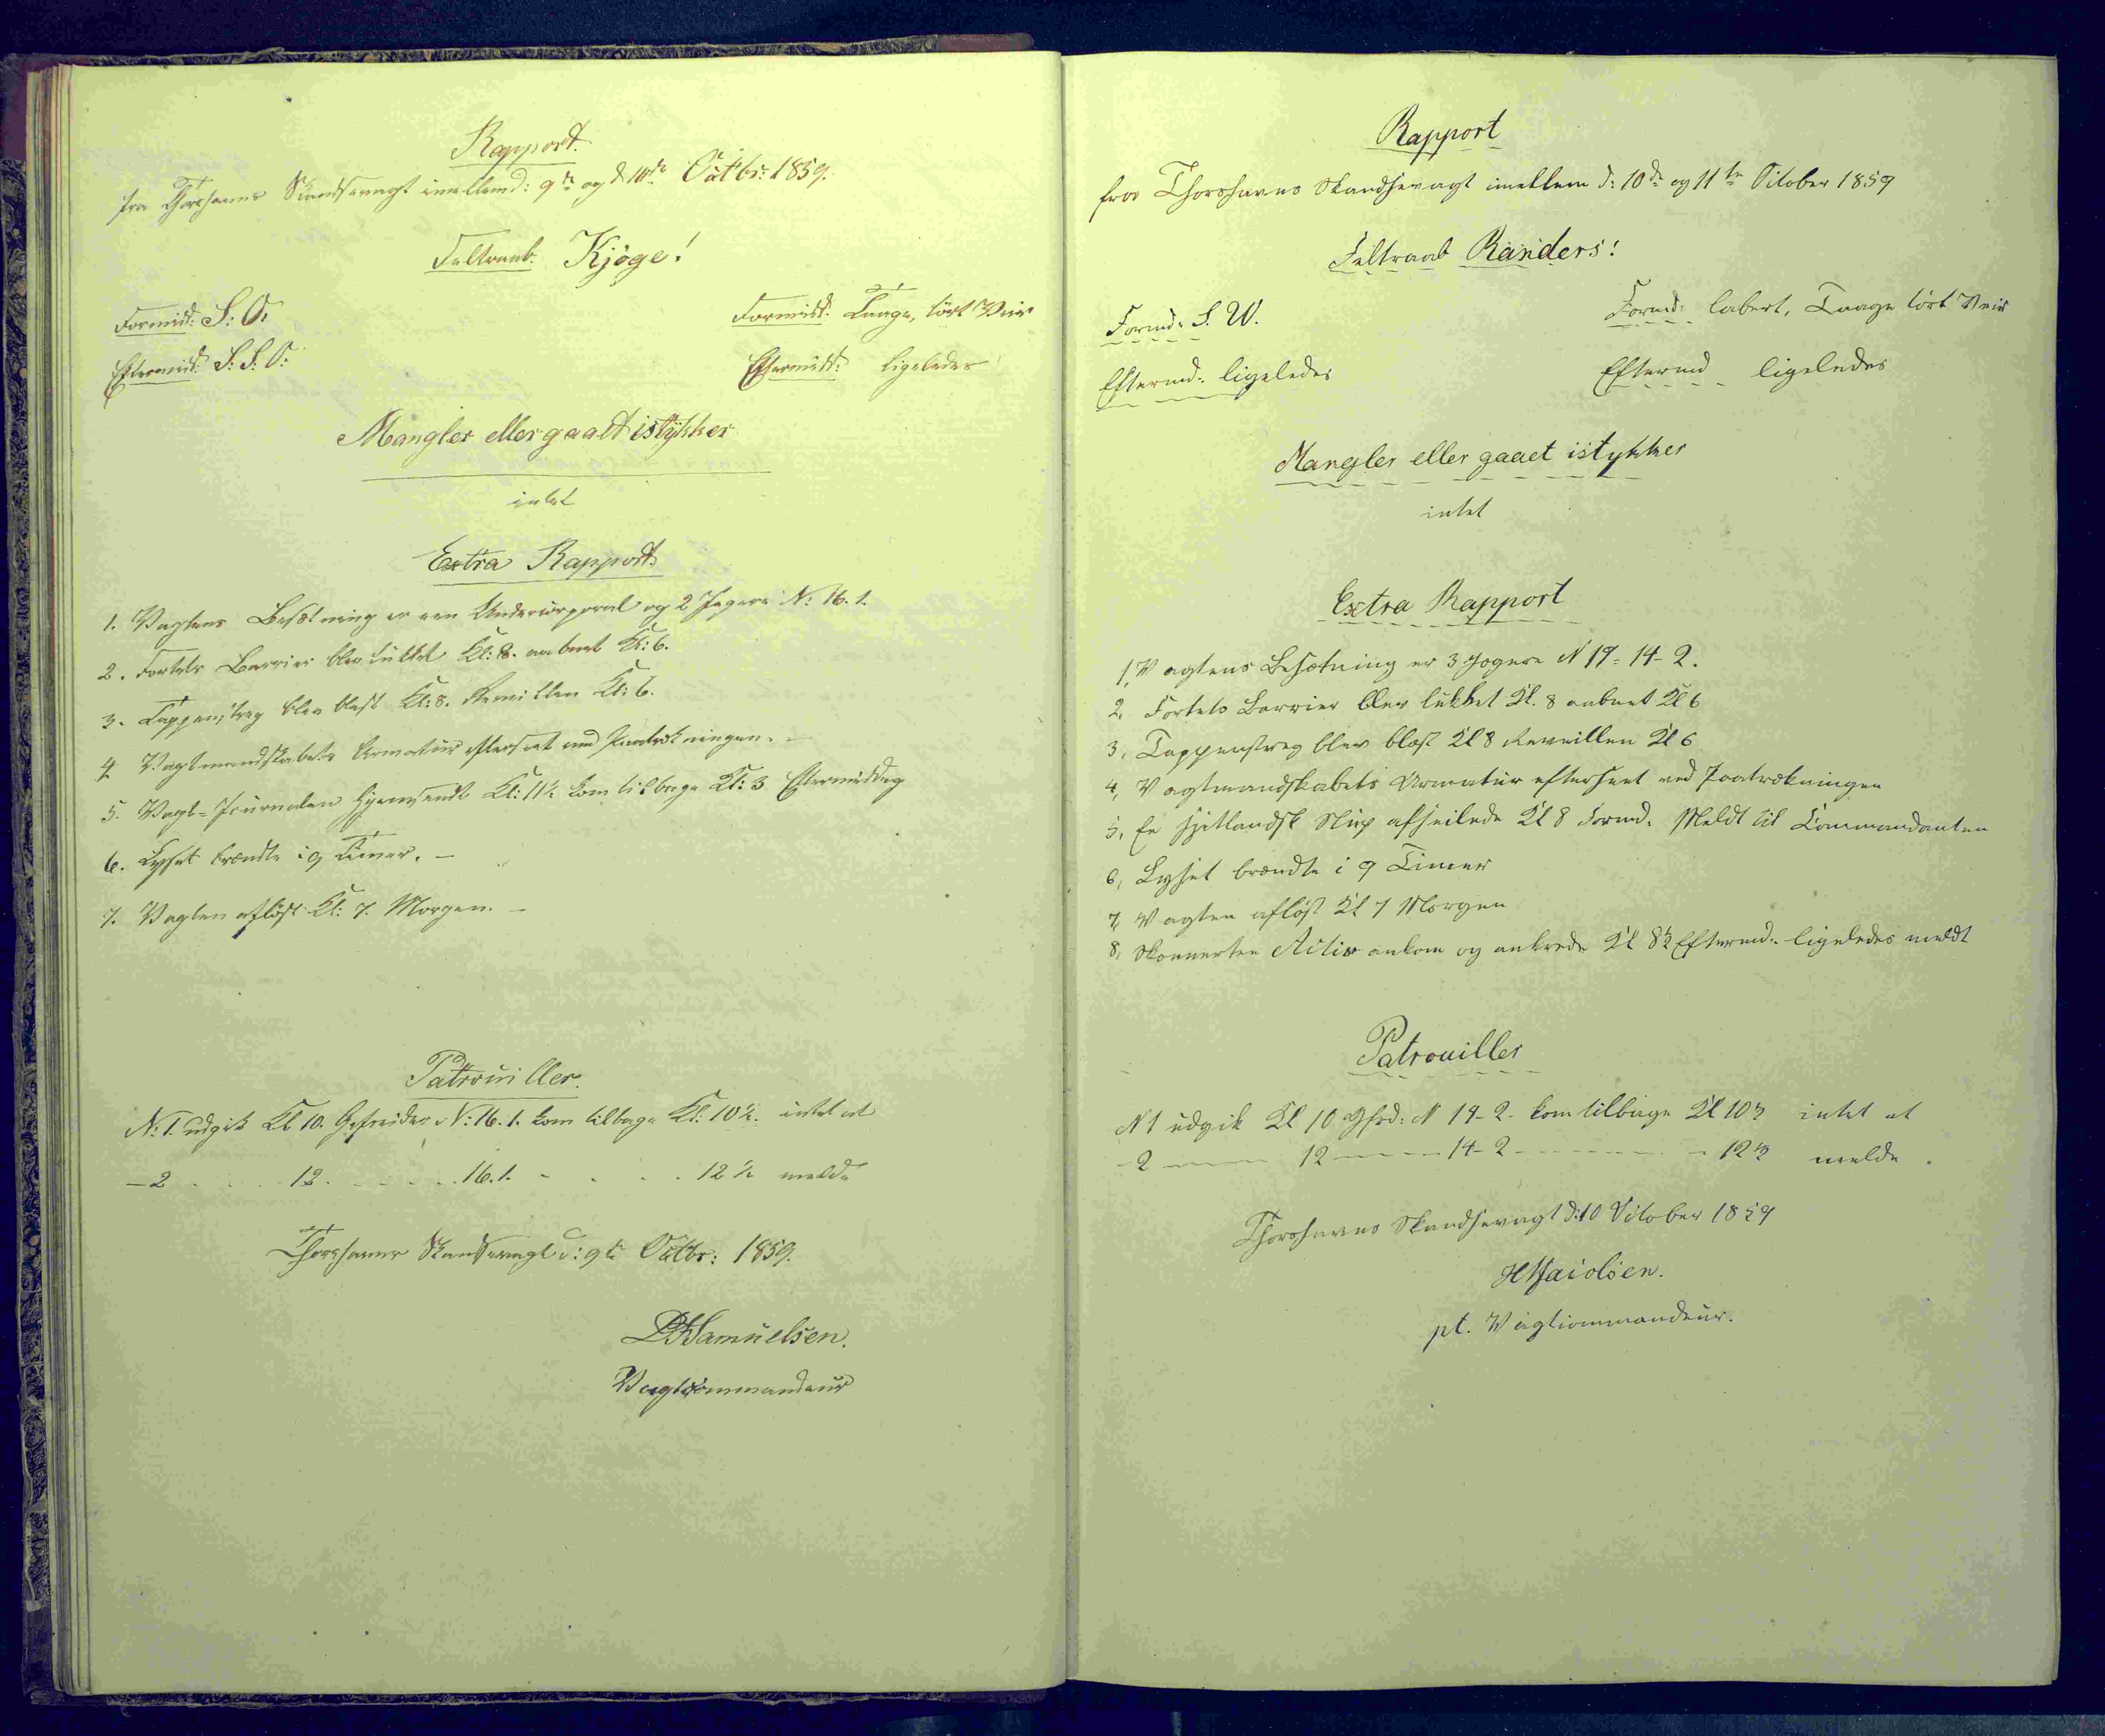 Rapport.
fra Thorshavns Skandsevagt imellem d: 9de og d 10de Octbr: 1859.
Feltraab. Kjöge!
Formid: S: O:
Formidd: Taage, tört Veir
Eftermid: S: S: O:
Eftermidd: ligeledes
Mangler eller gaaet istykker
intet
Extra Rapport.
1. Vagtens Besætning er een Undercorporal og 2 Jægere N: 16. 1.
2. Fortets Barrier blev lukket Kl: 8. aabnet Kl: 6.
3. Tappenstreg blev blæst Kl: 8. Reveillen Kl: 6.
4. Vagtmandskabets Armatur efterseet ved Paatrækningen. –
5. Vagt-Journalen hjemsendt Kl: 11½ kom tilbage Kl: 3 Eftermiddag
6. Lyset brændte i 9 Timer. –
7. Vagten aflöst Kl: 7. Morgen. –
Patrouiller.
N: 1. udgik Kl 10. Gefreider N: 16. 1. kom tilbage Kl: 10½. intet at
– 2 . . . . 12. . . . . . 16. 1. - . . . 12½ melde
Thorshavns Skandsevagt d: 9de Octbr: 1859.
Samuelsen.
Vagtcommandeur
Rapport
fra Thorshavns Skandsevagt imellem d: 10de og 11te October 1859
Feltraab Randers!
Formd: S. W.
Formd: labert, Taage tört Veir
Eftermd: ligeledes
Eftermd ligeledes
Mangler eller gaaet istykker
intet
Extra Rapport
1, Vagtens Besætning er 3 Jægere N 19- 14- 2.
2, Fortets Barrier blev lukket Kl. 8 aabnet Kl 6
3, Tappenstreg blev blæst Kl 8 Reveillen Kl 6
4, Vagtmandskabets Armatur efterseet ved Paatrækningen
5, En hjetlandsk Slup afseilede Kl 8 Formd. Meldt til Commandanten
6, Lyset brændte i 9 Timer
7, Vagten aflöst Kl 7 Morgen
8, Skonnerten Activ ankom og ankrede Kl 8½ Eftermd: ligeledes meldt
Patrouiller
N 1 udgik Kl 10 Gfrd: N 14- 2- kom tilbage Kl 10½ intet at
- 2 ---- 12 ---- 14- 2 -------- 12½ melde.
Thorshavns Skandsevagt d: 10 October 1859
pt. Vagtcommandeur.